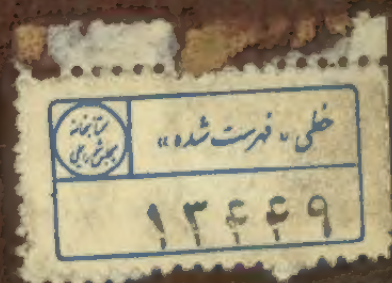 کتابخانه
مجلس شورای ملی
خطی « فهرست شده »
١٣٤٤٩